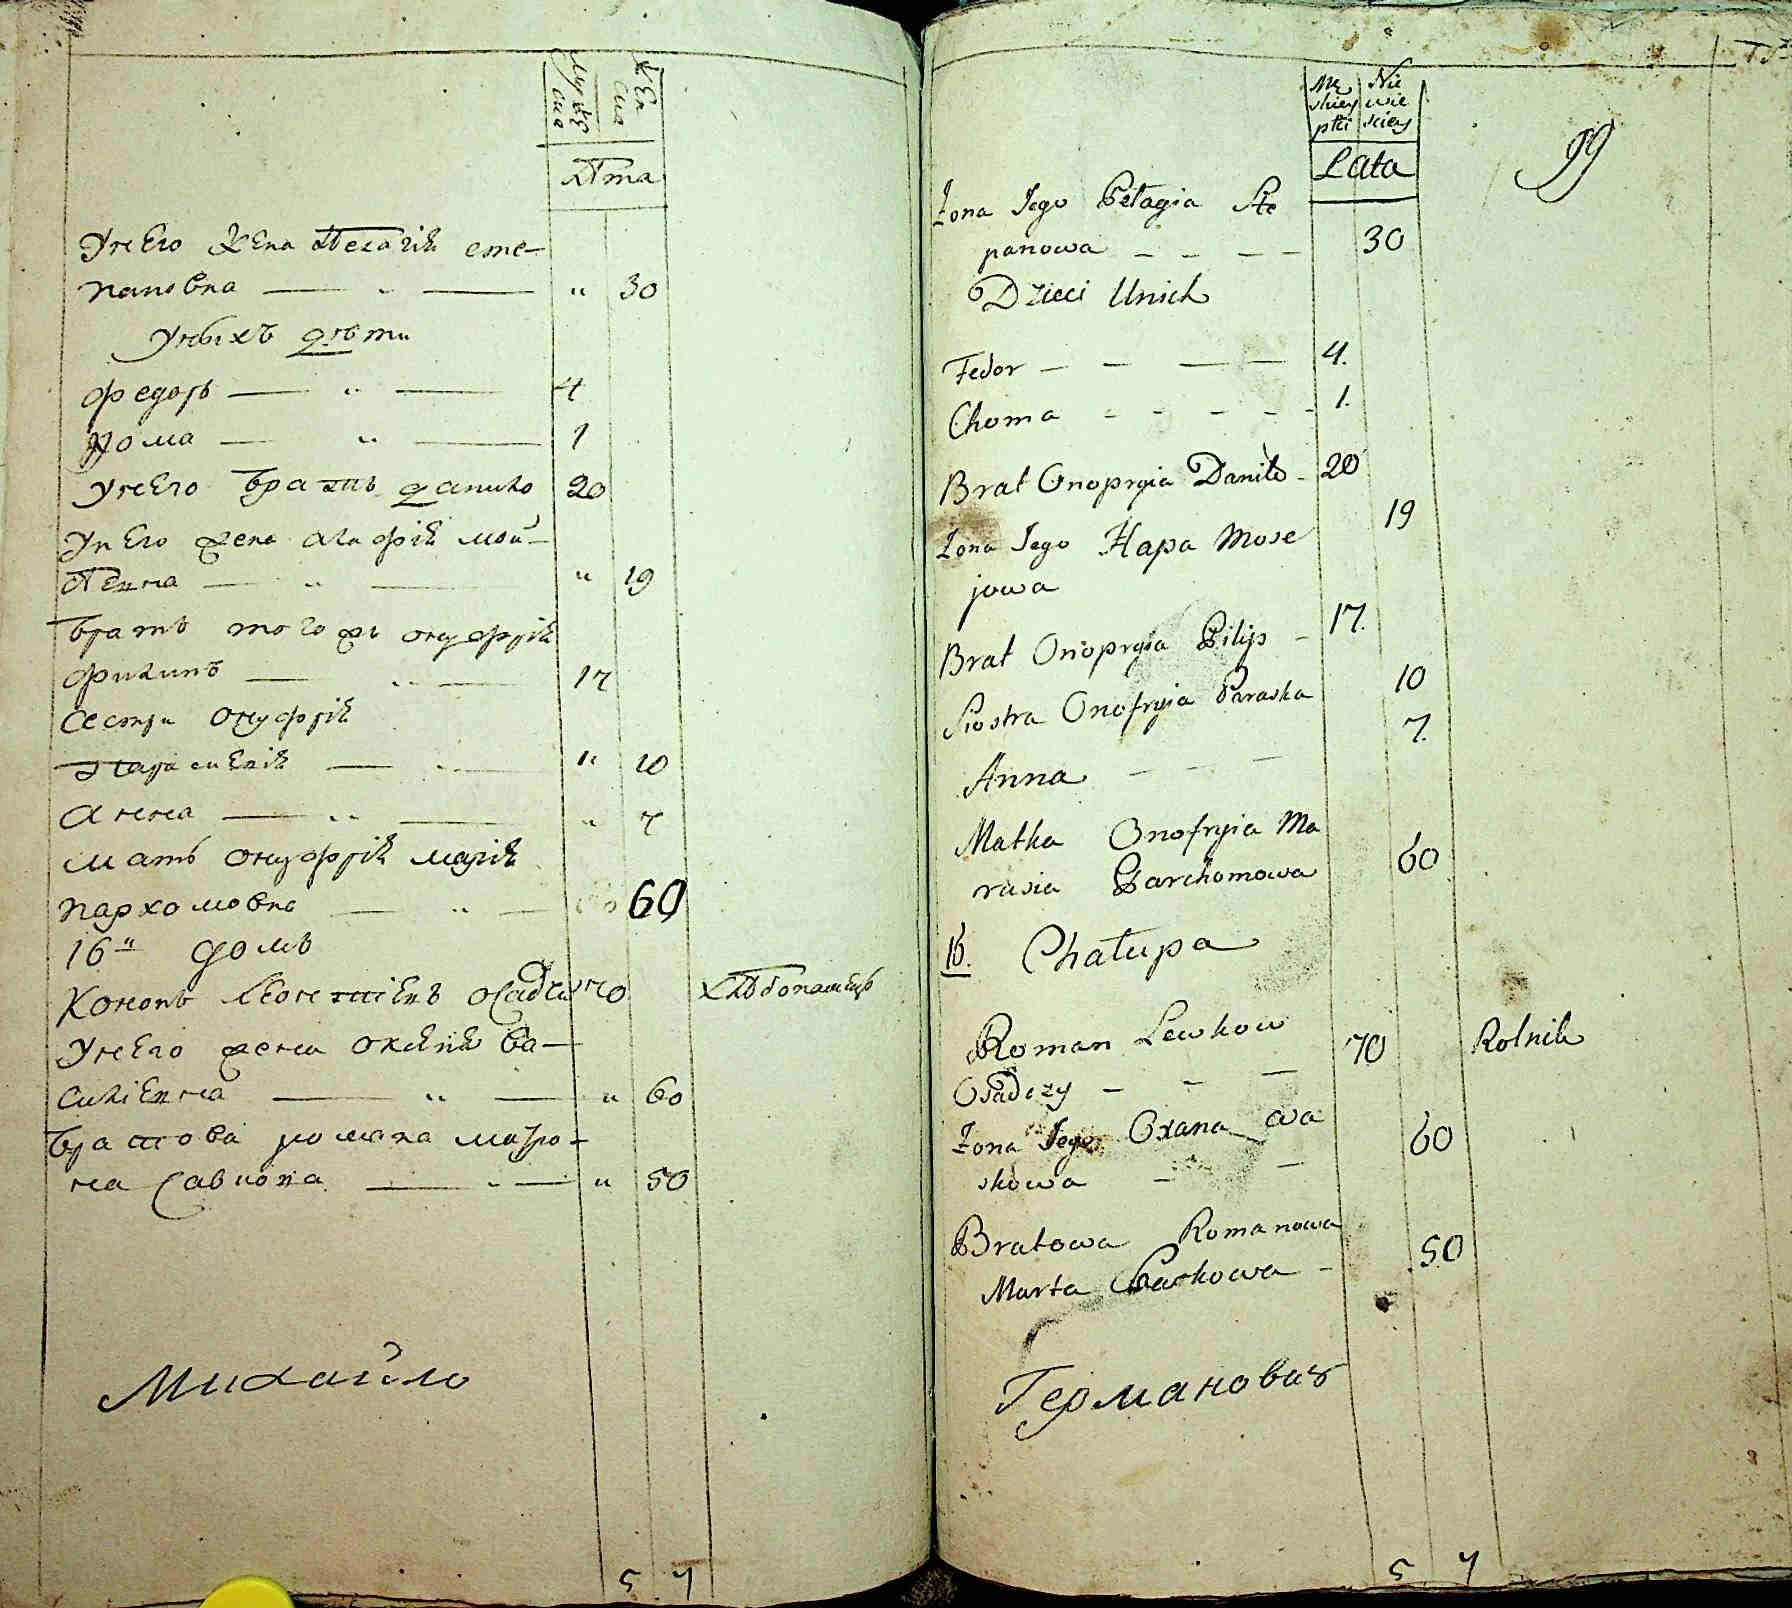 Мужеска
Женска
Лѣта
У него жена Пелагія Сте-
пановна — „ — „ 30
У них дѣти
Федоръ — „ — 4
Хома — „ — 1
У него братъ Данило 20
У него жена Агафія Мой-
„ 19
Братъ того жъ Онуфрія
Филипъ — „ — 17
Сестри Онуфрія
Параскевія — „ — „ 10
Анна — „ — „ 7
Мать Онуфрія Марія
Пархомовна — „ — 60
16„ Домъ
Осадчій 70 хлѣбопашецъ
У него жена Оксенія Ва-
силіевна — „ — „ 60
Братова Романа
„ — „ 50
Михайло
5 7
Mę skiey płci
Nie wie sciey
Lata
99
Żona Jego Pełagia Ste
panowa — — — — 30
Dzieci Unich
Fedor — — — — 4.
Choma - - - - - 1.
Brat Onopryia Daniło - 20
Żona Jego Hapa Mose 19
jowa
Brat Onopryia Pilip - 17.
Siostra Onofryia Paraska 10
Anna — — — 7.
Matka Onofryia Ma
rusia Parchomowa 60
16. Chałupa
Roman Lewkow 70 Rolnik
Osadczy — — —
Żona Jego Oxana Wa 60
skowa — —
Bratowa Romanowa 50
Marta -
Германовичъ
5 7